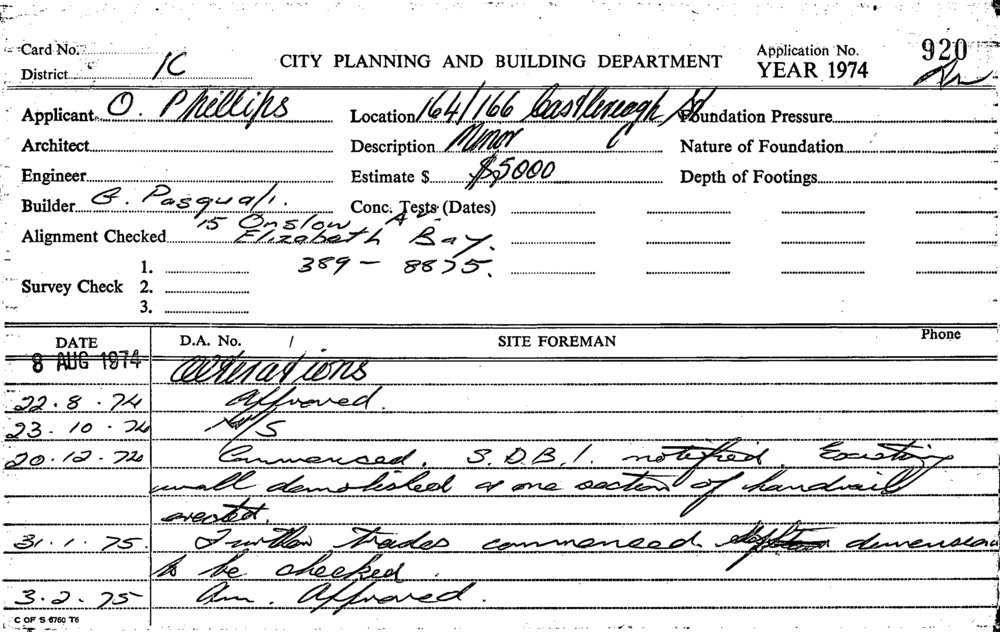 Card No.
District 1C
CITY PLANNING AND BUILDING DEPARTMENT
Application No. 920
YEAR 1974
Applicant O. Phillips
Location 164/166 Castlereagh St Foundation Pressure
Architect
Description Minor
Nature of Foundation
Engineer
Estimate $ $5000
Depth of Footings
Builder G. Pasquali.
Conc. Tests (Dates)
15 Onslow Ave
Alignment Checked Elizabeth Bay.
389 - 8875.
1.
Survey Check 2.
3.
DATE D.A. No. / SITE FOREMAN Phone
8 AUG 1974 Alterations
22.8.74 Approved.
23.10.74 N/S
20.12.74 Commenced. S.D.B.I. notified. Existing
wall demolished & one section of handrail
erected.
31.1.75. Further trades commenced. dimension
to be checked.
3.2.75 Am. Approved.
C OF S 6760 T6